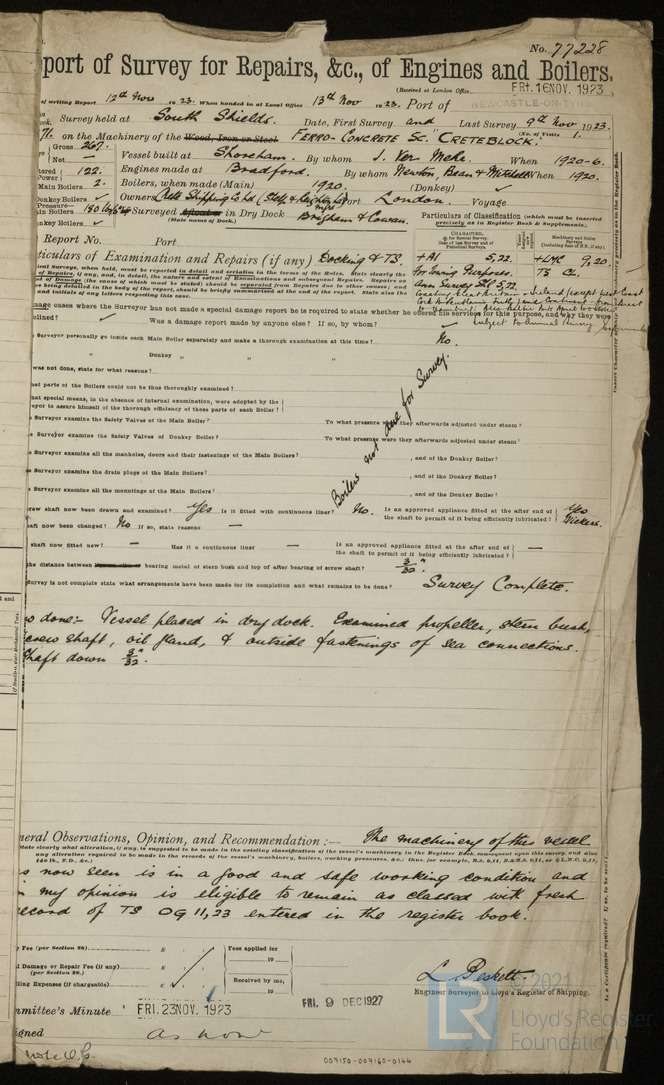 No. 77228
port of Survey for Repairs, &c., of Engines and Boilers.
(Received at London Office FRI. 16 NOV. 1923
of writing Report 12th Nov 1923. When handed in at Local Office 13th Nov 1923. Port of NEWCASTLE-ON-TYNE
Survey held at South Shields. Date, First Survey and Last Survey 9th Nov 1923.
(No. of Visits 1.
71. on the Machinery of the Wood, Iron or Steel FERRO-CONCRETE SC. "CRETEBLOCK."
Gross 267. Vessel built at Shoreham. By whom J. Ver Mehr. When 1920-6.
Net —
122. Engines made at Bradford. By whom Newton, Bean & Mitchell When 1920.
Main Boilers 2. Boilers, when made (Main) 1920. (Donkey) ✓
Donkey Boilers ✓ Owners Crete Shipping Co Ld Port London. Voyage
Pressure—
in Boilers 180 lbs Surveyed Afloat or in Dry Dock Brigham & Cowan.
(State name of Dock.)
nkey Boilers ✓
Particulars of Classification (which must be inserted precisely as in Register Book & Supplements).
Report No. Port
ticulars of Examination and Repairs (if any) Docking & TS.
+A1 5,22. +LMC 9,20.
for Towing Purposes. TS CL.
Ann Survey 5,22.
subject to Annual Survey
mage cases where the Surveyor has not made a special damage report he is required to state whether he offered his services for this purpose, and why they were
nlined? ✓ Was a damage report made by anyone else? If so, by whom? ✓
e Surveyor personally go inside each Main Boiler separately and make a thorough examination at this time? No.
" Donkey " " "
was not done, state for what reasons?
hat parts of the Boilers could not be thoroughly examined?
hat special means, in the absence of internal examination, were adopted by the
eyor to assure himself of the thorough efficiency of those parts of each Boiler?
Boilers not due for Survey.
e Surveyor examine the Safety Valves of the Main Boiler? To what pressure were they afterwards adjusted under steam?
e Surveyor examine the Safety Valves of Donkey Boiler? To what pressure were they afterwards adjusted under steam?
e Surveyor examine all the manholes, doors and their fastenings of the Main Boilers? , and of the Donkey Boiler?
e Surveyor examine the drain plugs of the Main Boilers? , and of the Donkey Boiler?
e Surveyor examine all the mountings of the Main Boilers? , and of the Donkey Boiler?
crew shaft now been drawn and examined? Yes Is it fitted with continuous liner? No. Is an approved appliance fitted at the after end of the shaft to permit of it being efficiently lubricated? Yes Vickers.
aft now been changed? No If so, state reasons —
shaft now fitted new? — Has it a continuous liner — Is an approved appliance fitted at the after end of the shaft to permit of it being efficiently lubricated? —
the distance between bearing metal of stern bush and top of after bearing of screw shaft? 3/32".
Survey is not complete state what arrangements have been made for its completion and what remains to be done? Survey Complete.
w done:- Vessel placed in dry dock. Examined propeller, stern bush,
crew shaft, oil gland, & outside fastenings of sea connections.
haft down 3/32".
neral Observations, Opinion, and Recommendation:— The machinery of this vessel
s now seen is in a good and safe working condition and
n my opinion is eligible to remain as classed with fresh
record of TS OG 11,23 entered in the register book.
y Fee (per Section 28) £ : : Fees applied for
19
l Damage or Repair Fee (if any) £ : :
(per Section 28.)
lling Expenses (if chargeable) £ : : Received by me,
19
L. Peskett.
Engineer Surveyor to Lloyd's Register of Shipping.
mmittee's Minute FRI. 23 NOV. 1923 FRI. 9 DEC 1927
igned as now
© 2021
LR Lloyd's Register
Foundation
007150-007160-0166